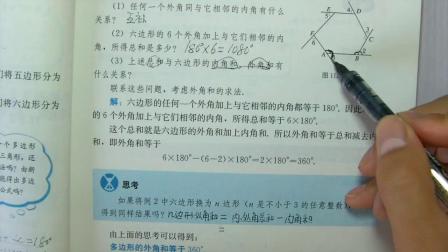 (1) 任何一个外角同与它相邻的内角有什么
关系? 互补
(2) 六边形的6个外角加上与它们相邻的内
角,所得总和是多少? 180°×6=1080°
(3) 上述总和与六边形的内角和、外角和有
什么关系?
联系这些问题,考虑外角和的求法.
解:六边形的任何一个外角加上与它相邻的内角都等于180°,因此
的6个外角加上与它们相邻的内角,所得总和等于6×180°.
这个总和就是六边形的外角和加上内角和.所以外角和等于总和减去内
和,即外角和等于
6×180°-(6-2)×180°=2×180°=360°.
思考
如果将例2中六边形换为n边形(n是不小于3的任意整数)
得到同样结果吗? n边形外角和=内外角总和-内角和
=
由上面的思考可以得到:
多边形的外角和等于360°.
们将五边形分为
们将n边形分为
个多边形
三角形,还
法吗?由新
能得出多边
公式吗?
=180°
E
5
4
D
F
6
3
C
A
B
2
图11